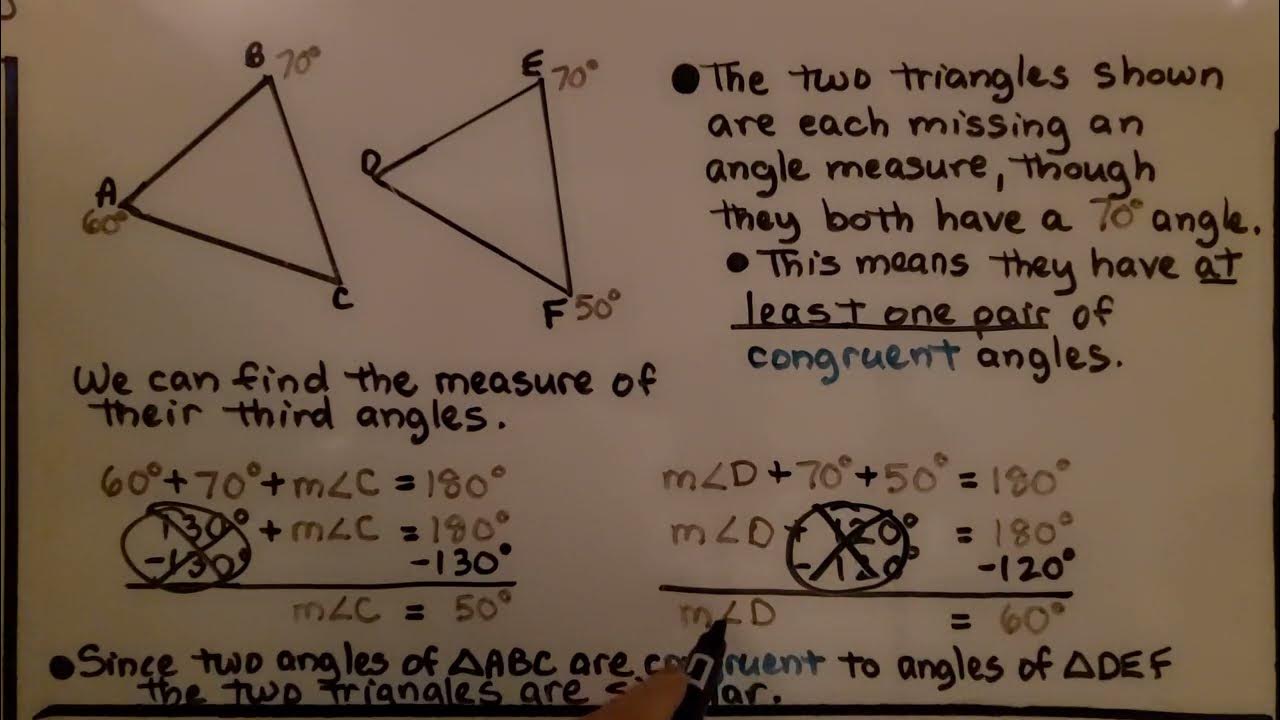 B 70°
E 70°
A
60°
D
C
F 50°
●The two triangles shown
are each missing an
angle measure, though
they both have a 70° angle.
• This means they have at
least one pair of
congruent angles.
We can find the measure of
their third angles.
60°+70°+m∠C =180°
130° + m∠C =180°
-130° -130°
m∠C = 50°
m∠D+70°+50° =180°
m∠D + 120° = 180°
- 120° -120°
m∠D = 60°
●Since two angles of △ABC are congruent to angles of △DEF
the two triangles are similar.